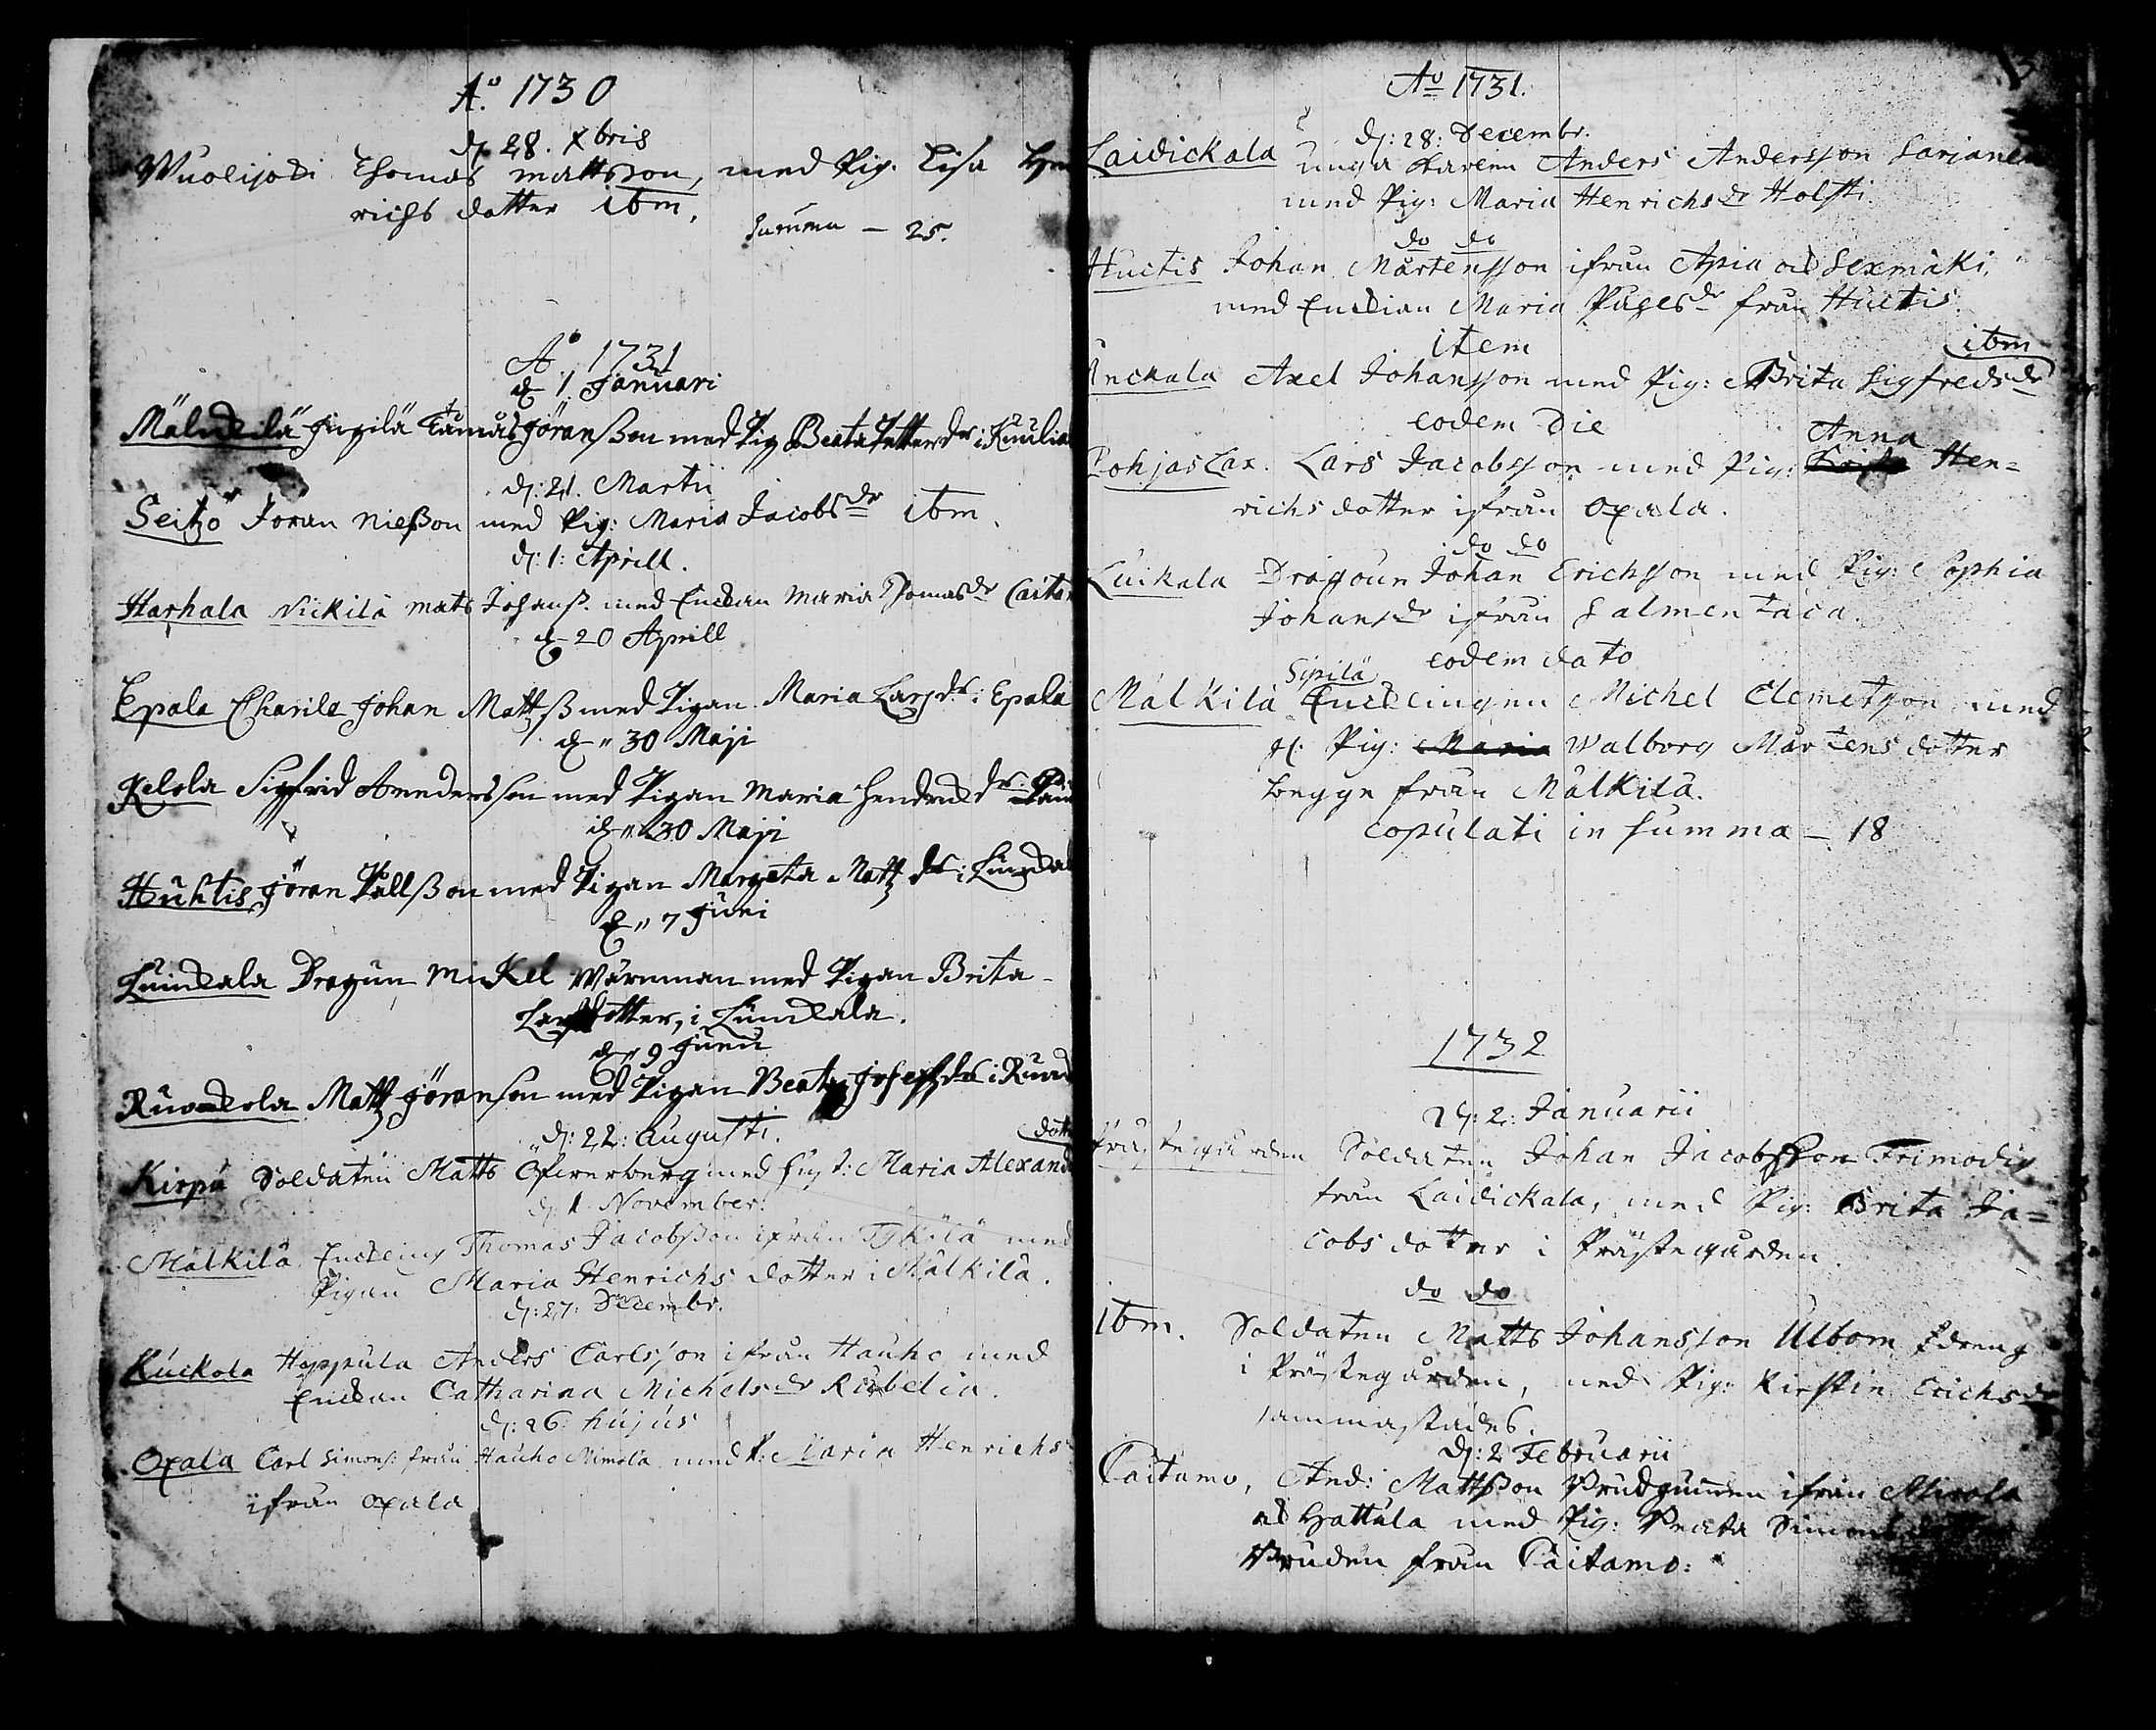 A:o 1730
d. 28. Xbris
Wuolijoki Thomas Mattsson, med Pig. Lisa Hen
richs dotter ibm.
Summa — 25.
A:o 1731
d. 1 Januari
Mälkilä Tåmas Jöranßon med Pig Beata Petterdr i
d: 21. Martii
Seitzö Jöran Nielßon med Pig: Maria Jacobsdr ibm.
d: 1: Aprill.
Harhala Nickilä Mats Johanß. med Enckan Maria Thomasdr
d 20 Aprill
Epala Johan Mattzß med Pigan Maria Larsdr i Epala
d 30 Maji
Kelola Sigfrid Andersson med Pigan Maria
d 30 Maji
Huhtis Jöran Pållßon med Pigan Margeta Mattz dr i
d 7 Juni
Luickala Dragun Mickel Wärnman med Pigan Brita
Larsdotter, i Luickala.
d 9 Juni
Mattz Jöranson med Pigan Beata Josephdr i
d: 22: Augusti.
dott
Kirpu Soldaten Matts Öfwerberg med Hust: Maria Alexand
d. 1 November.
Mälkilä Enckling Thomas Jacobßon ifrån Tykölä med
Pigan Maria Henrichs dotter i Mälkilä.
d: 27: Decembr.
Kuckola Heppula Anders Carlsson ifrån Hauho med
Enckan Catharina Michelsdr
d: 26: hujus
Oxala Carl Simons: från Hauho Mimola med P: Maria Henrichs
ifrån Oxala
A:o 1731.
d: 28: Decembr.
Laidickala unga Karlen Anders Andersson
med Pig: Maria Henrichsdr Holsti
do do
Huctis Johan Mårtensson ifrån Apia och Sexmäki,
med Enckian Maria Pågelsdr från Huctis.
item
ibm
Anckala Axel Johansson med Pig: Brita Sigfredsdr
eodem Die
Anna
Pohjaslax. Lars Jacobsson med Pig: Hen=
richs dotter ifrån Oxala.
do do
Luikala Dragoun Johan Erichsson med Pig: Sophia
Johansdr ifrån Salmentaca.
eodem dato
Sipilä
Mälkilä Encklingen Michel Clemetson med
Pig: Maria Walborg Mårtens dotter
begge från Mälkilä.
copulati in summa — 18
1732
d: 2: Januarii
Prästegården Soldaten Johan Jacobsson Frimodig
från Laidickala, med Pig: Brita Ja=
cobs dotter i Prästegården.
do do
ibm. Soldaten Matts Johansson Ulbom dreng
i Prästegården, med Pig: Kirstin Erichsdr
sammastädes.
d: 2 Februarii
Caitamo, And: Mattßon Brudgummen ifrån
Hattula med Pig: Beata Simons
Bruden från Caitamo: